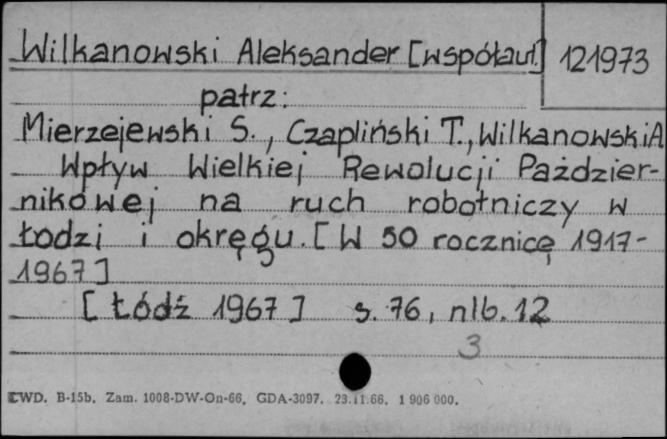 Wilkanowski Aleksander [współaut.] 121973
patrz:
Mierzejewski S., Czapliński T., Wilkanowski A
Wpływ Wielkiej Rewolucji Paździer-
nikowej na ruch robotniczy w
Łodzi i okręgu. [W 50 rocznicę 1917-
1967]
[Łódź 1967] s. 76, nlb. 12
3
ŁWD. B-15b. Zam. 1008-DW-On-66. GDA-3097. 23.11.66. 1 906 000.